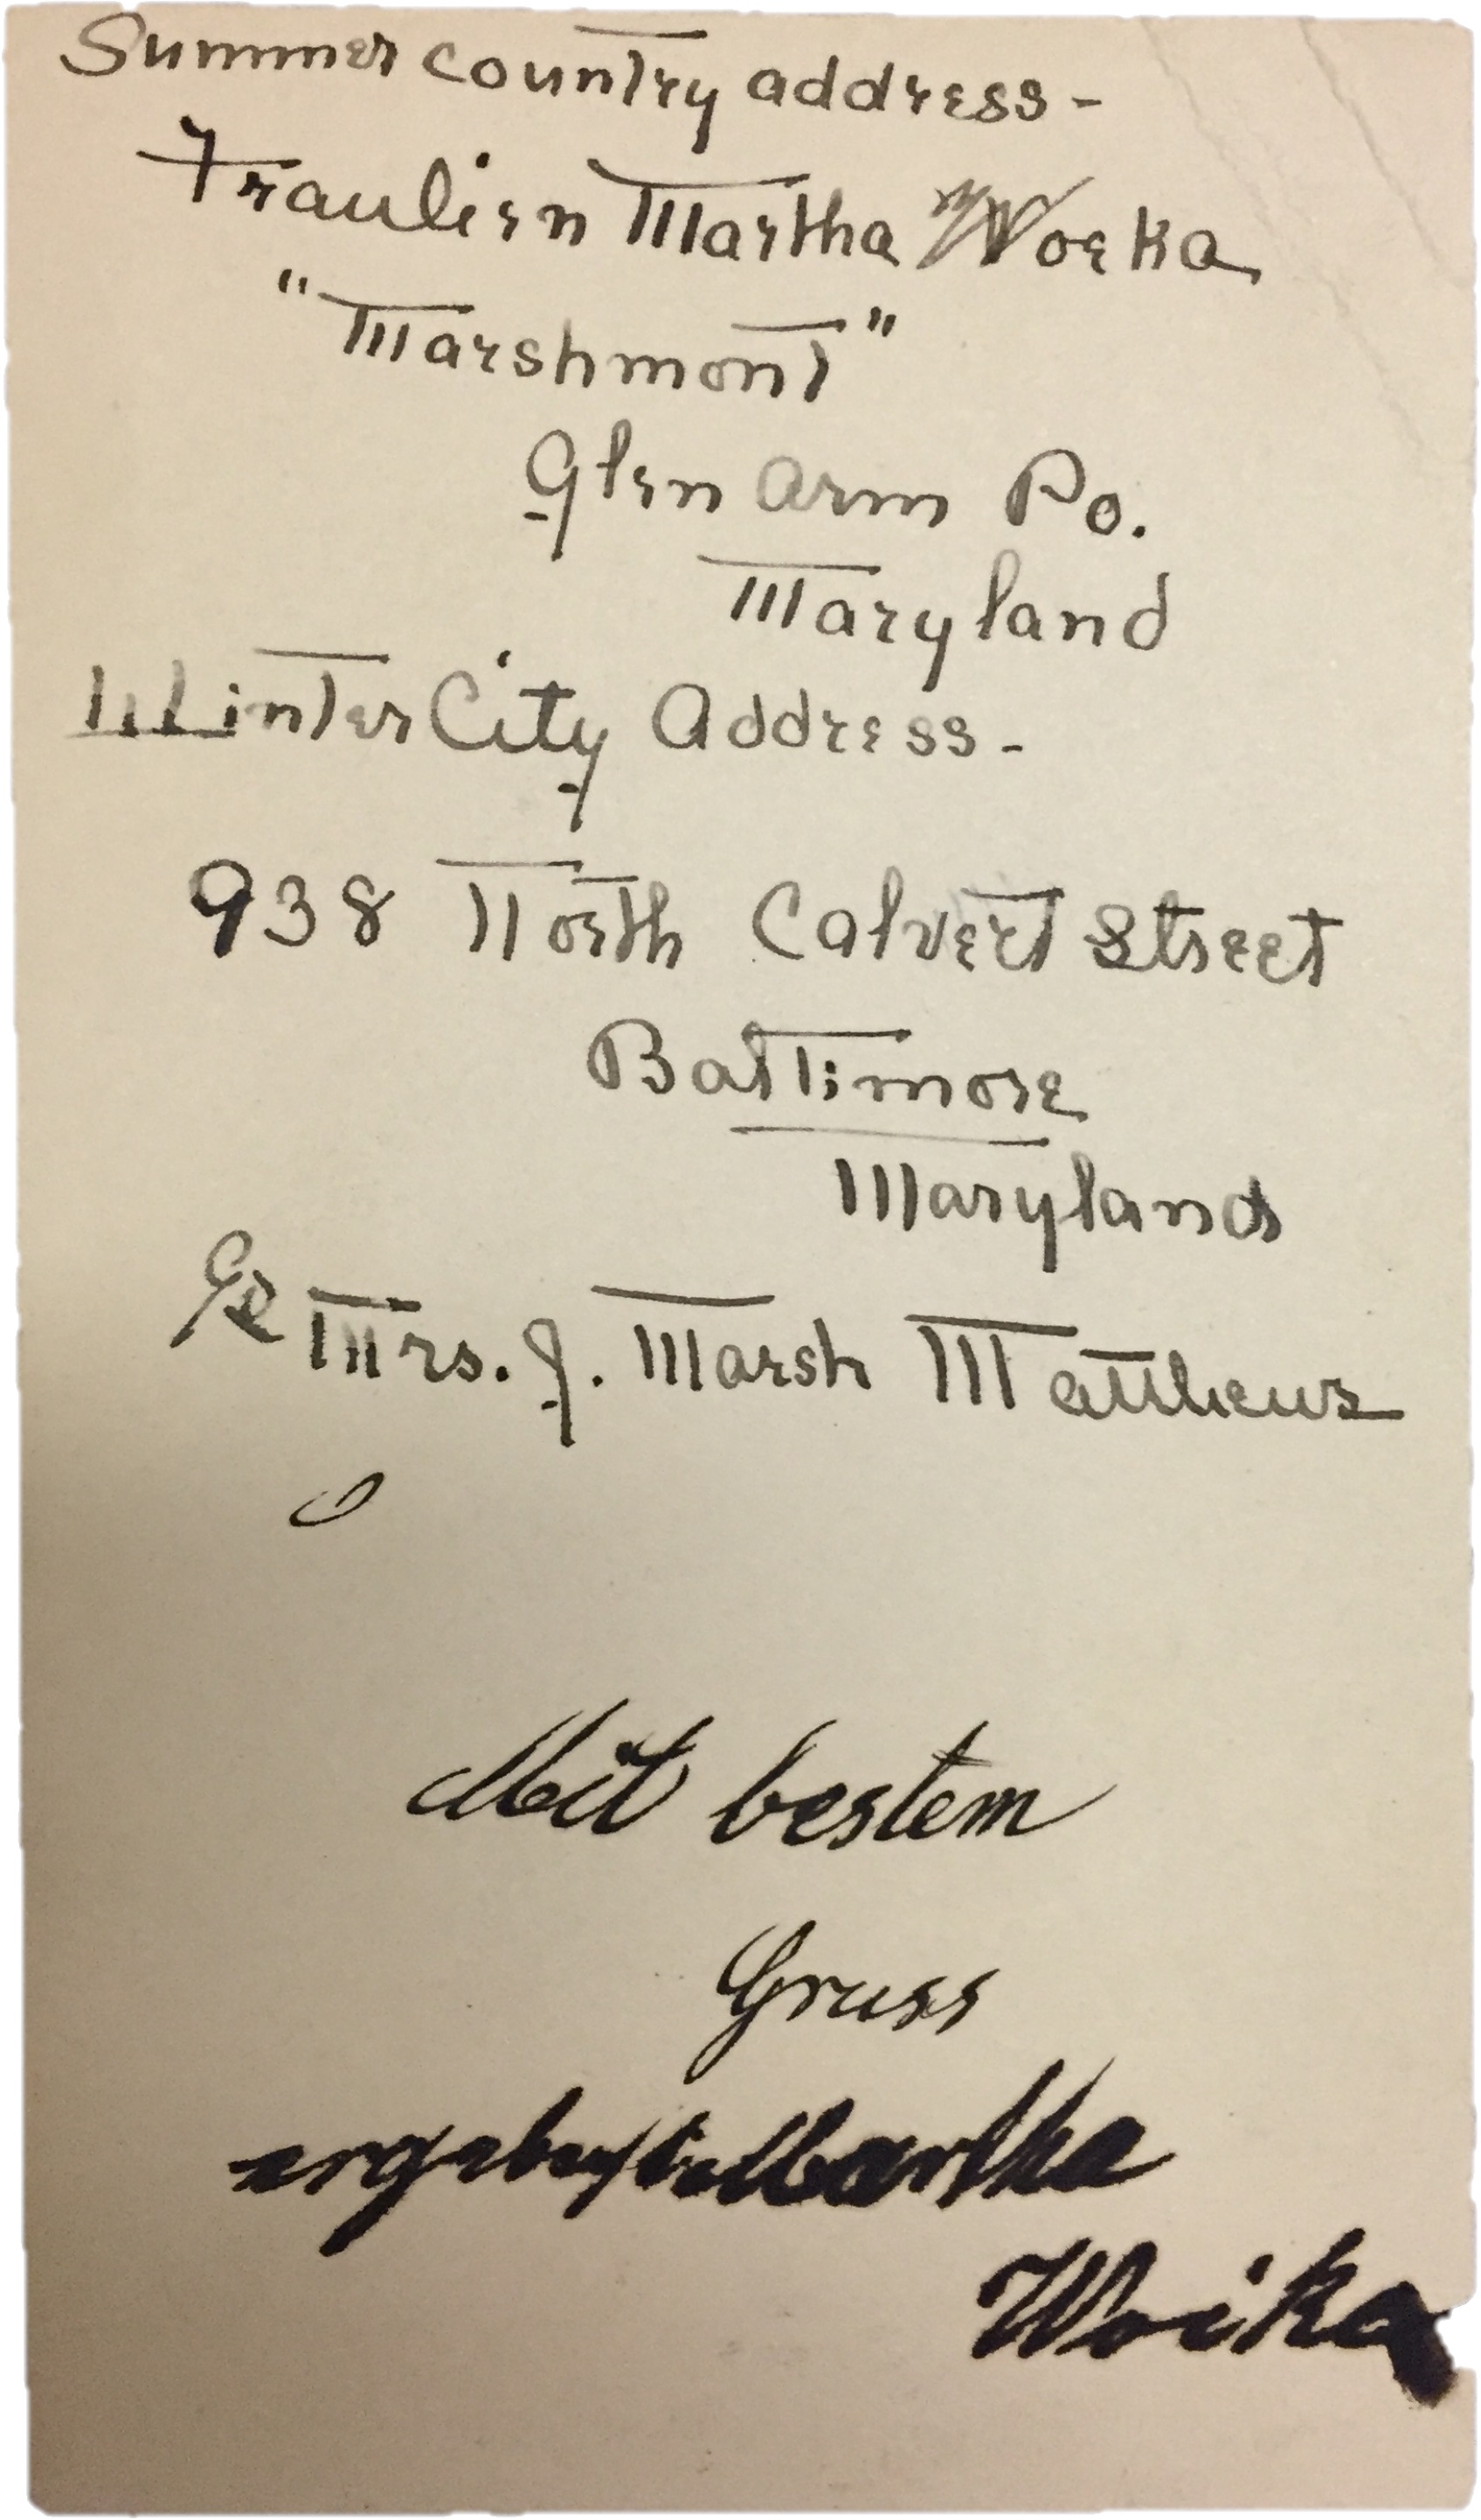 Summer country address -
Fraulien Martha Woeka
"Marshmont"
Glen Arm Po.
Maryland
Winter City Address -
938 North Calvert Street
Baltimore
Maryland
c/o Mrs. J. Marsh Matthews
Mit bestem
Gruss
ergebenst Martha
Woika